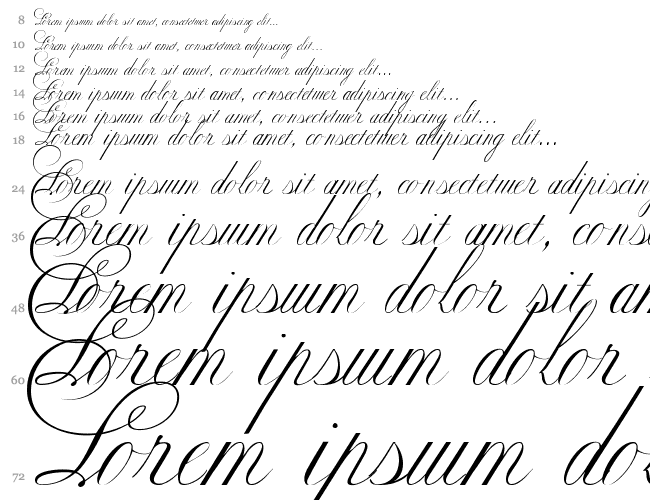 8 Lorem ipsum dolor sit amet, consectetuer adipiscing elit...
10 Lorem ipsum dolor sit amet, consectetuer adipiscing elit...
12 Lorem ipsum dolor sit amet, consectetuer adipiscing elit...
14 Lorem ipsum dolor sit amet, consectetuer adipiscing elit...
16 Lorem ipsum dolor sit amet, consectetuer adipiscing elit...
18 Lorem ipsum dolor sit amet, consectetuer adipiscing elit...
24 Lorem ipsum dolor sit amet, consectetuer adipiscing
36 Lorem ipsum dolor sit amet, cons
48 Lorem ipsum dolor sit am
60 Lorem ipsum dolor
72 Lorem ipsum do